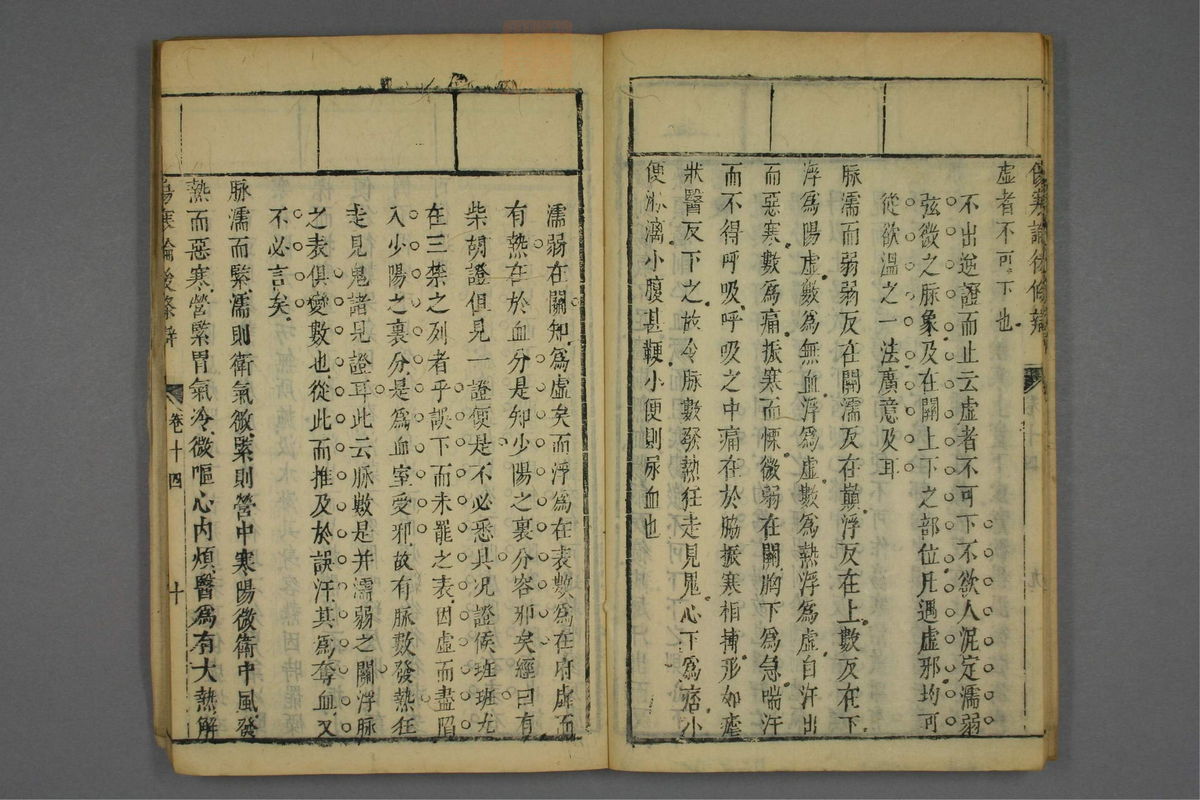 傷寒論後條辨
虛者不可下也
不出逆證而止云虛者不可下不欲人泥定濡弱
弦微之脉象及在關上下之部位凡遇虛邪均可
從欲溫之一法廣意及耳
脉濡而弱弱反在關濡反在巔浮反在上數反在下
浮爲陽虛數爲無血浮爲虛數爲熱浮爲虛自汗出
而惡寒數爲痛振寒而慄微弱在關胸下爲急喘汗
而不得呼吸呼吸之中痛在於脇振寒相搏形如瘧
狀醫反下之故令脉數發熱狂走見鬼心下爲痞小
便淋漓小腹甚鞕小便則尿血也
九
濡弱在關知爲虛矣而浮爲在表數爲在府虛而
有熱在於血分是知少陽之裏分容邪矣經曰有
柴胡證但見一證便是不必悉具况證候班班尤
在三禁之列者乎誤下而未罷之表因虛而盡陷
入少陽之裏分是爲血室受邪故有脉數發熱狂
走見鬼諸見證耳此云脉數是并濡弱之關浮脉
之表俱變數也從此而推及於誤汗其爲奪血又
不必言矣
脉濡而緊濡則衛氣微緊則營中寒陽微衛中風發
熱而惡寒營緊胃氣冷微嘔心內煩醫爲有大熱解
傷寒論後條辨
卷十四
十